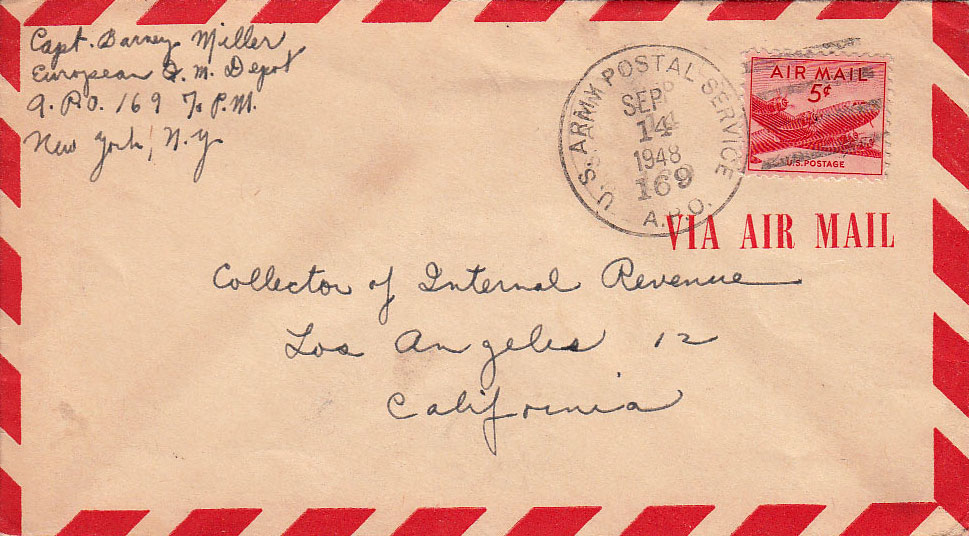 Capt. Barney Miller
European Q. M. Depot
A. P.O. 169 % P.M.
New York, N.Y
U.S. ARMY POSTAL SERVICE
SEP
14
1948
169
A.P.O.
AIR MAIL
5¢
U.S. POSTAGE
VIA AIR MAIL
Collector of Internal Revenue
Los Angeles 12
California